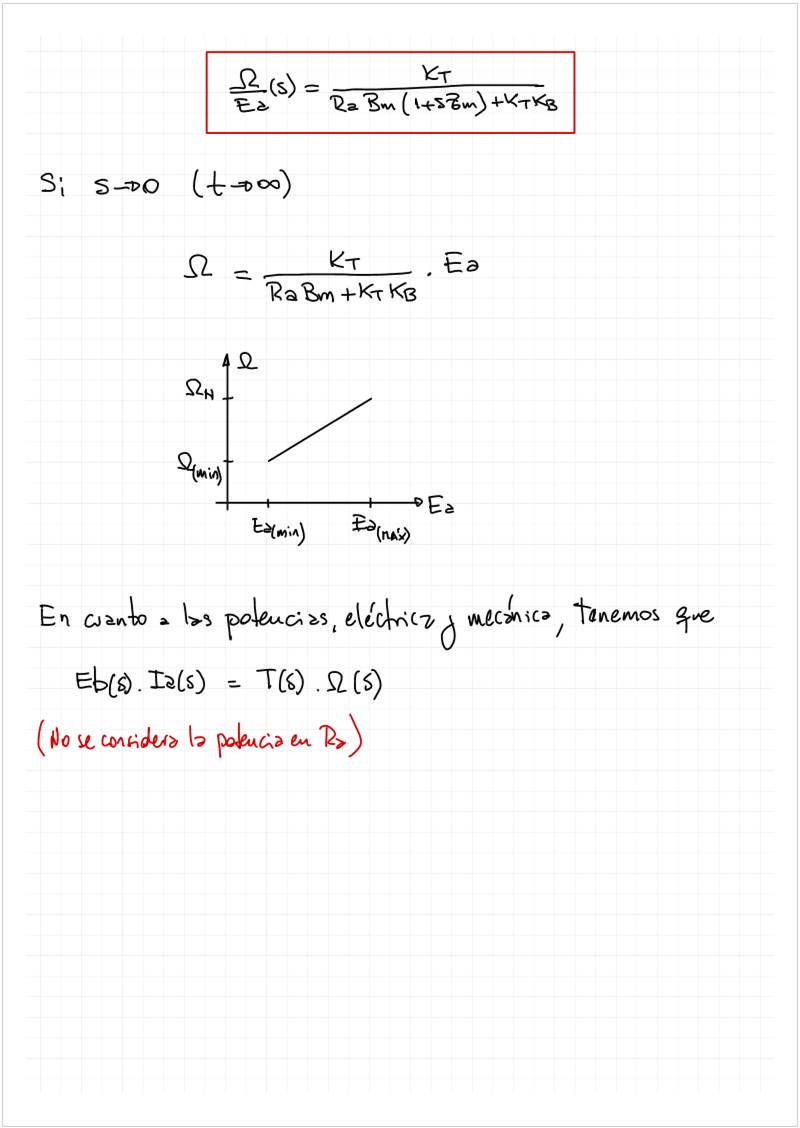 Ω/Ea (s) = KT / (Ra Bm (1+sτm) + KT KB)
Si s→0 (t→∞)
Ω = KT / (Ra Bm + KT KB) . Ea
Ω
ΩN
Ω(min)
Ea
Ea(min) Ea(máx)
En cuanto a las potencias, eléctrica y mecánica, tenemos que
Eb(s). Ia(s) = T(s). Ω(s)
(No se considera la potencia en Ra)